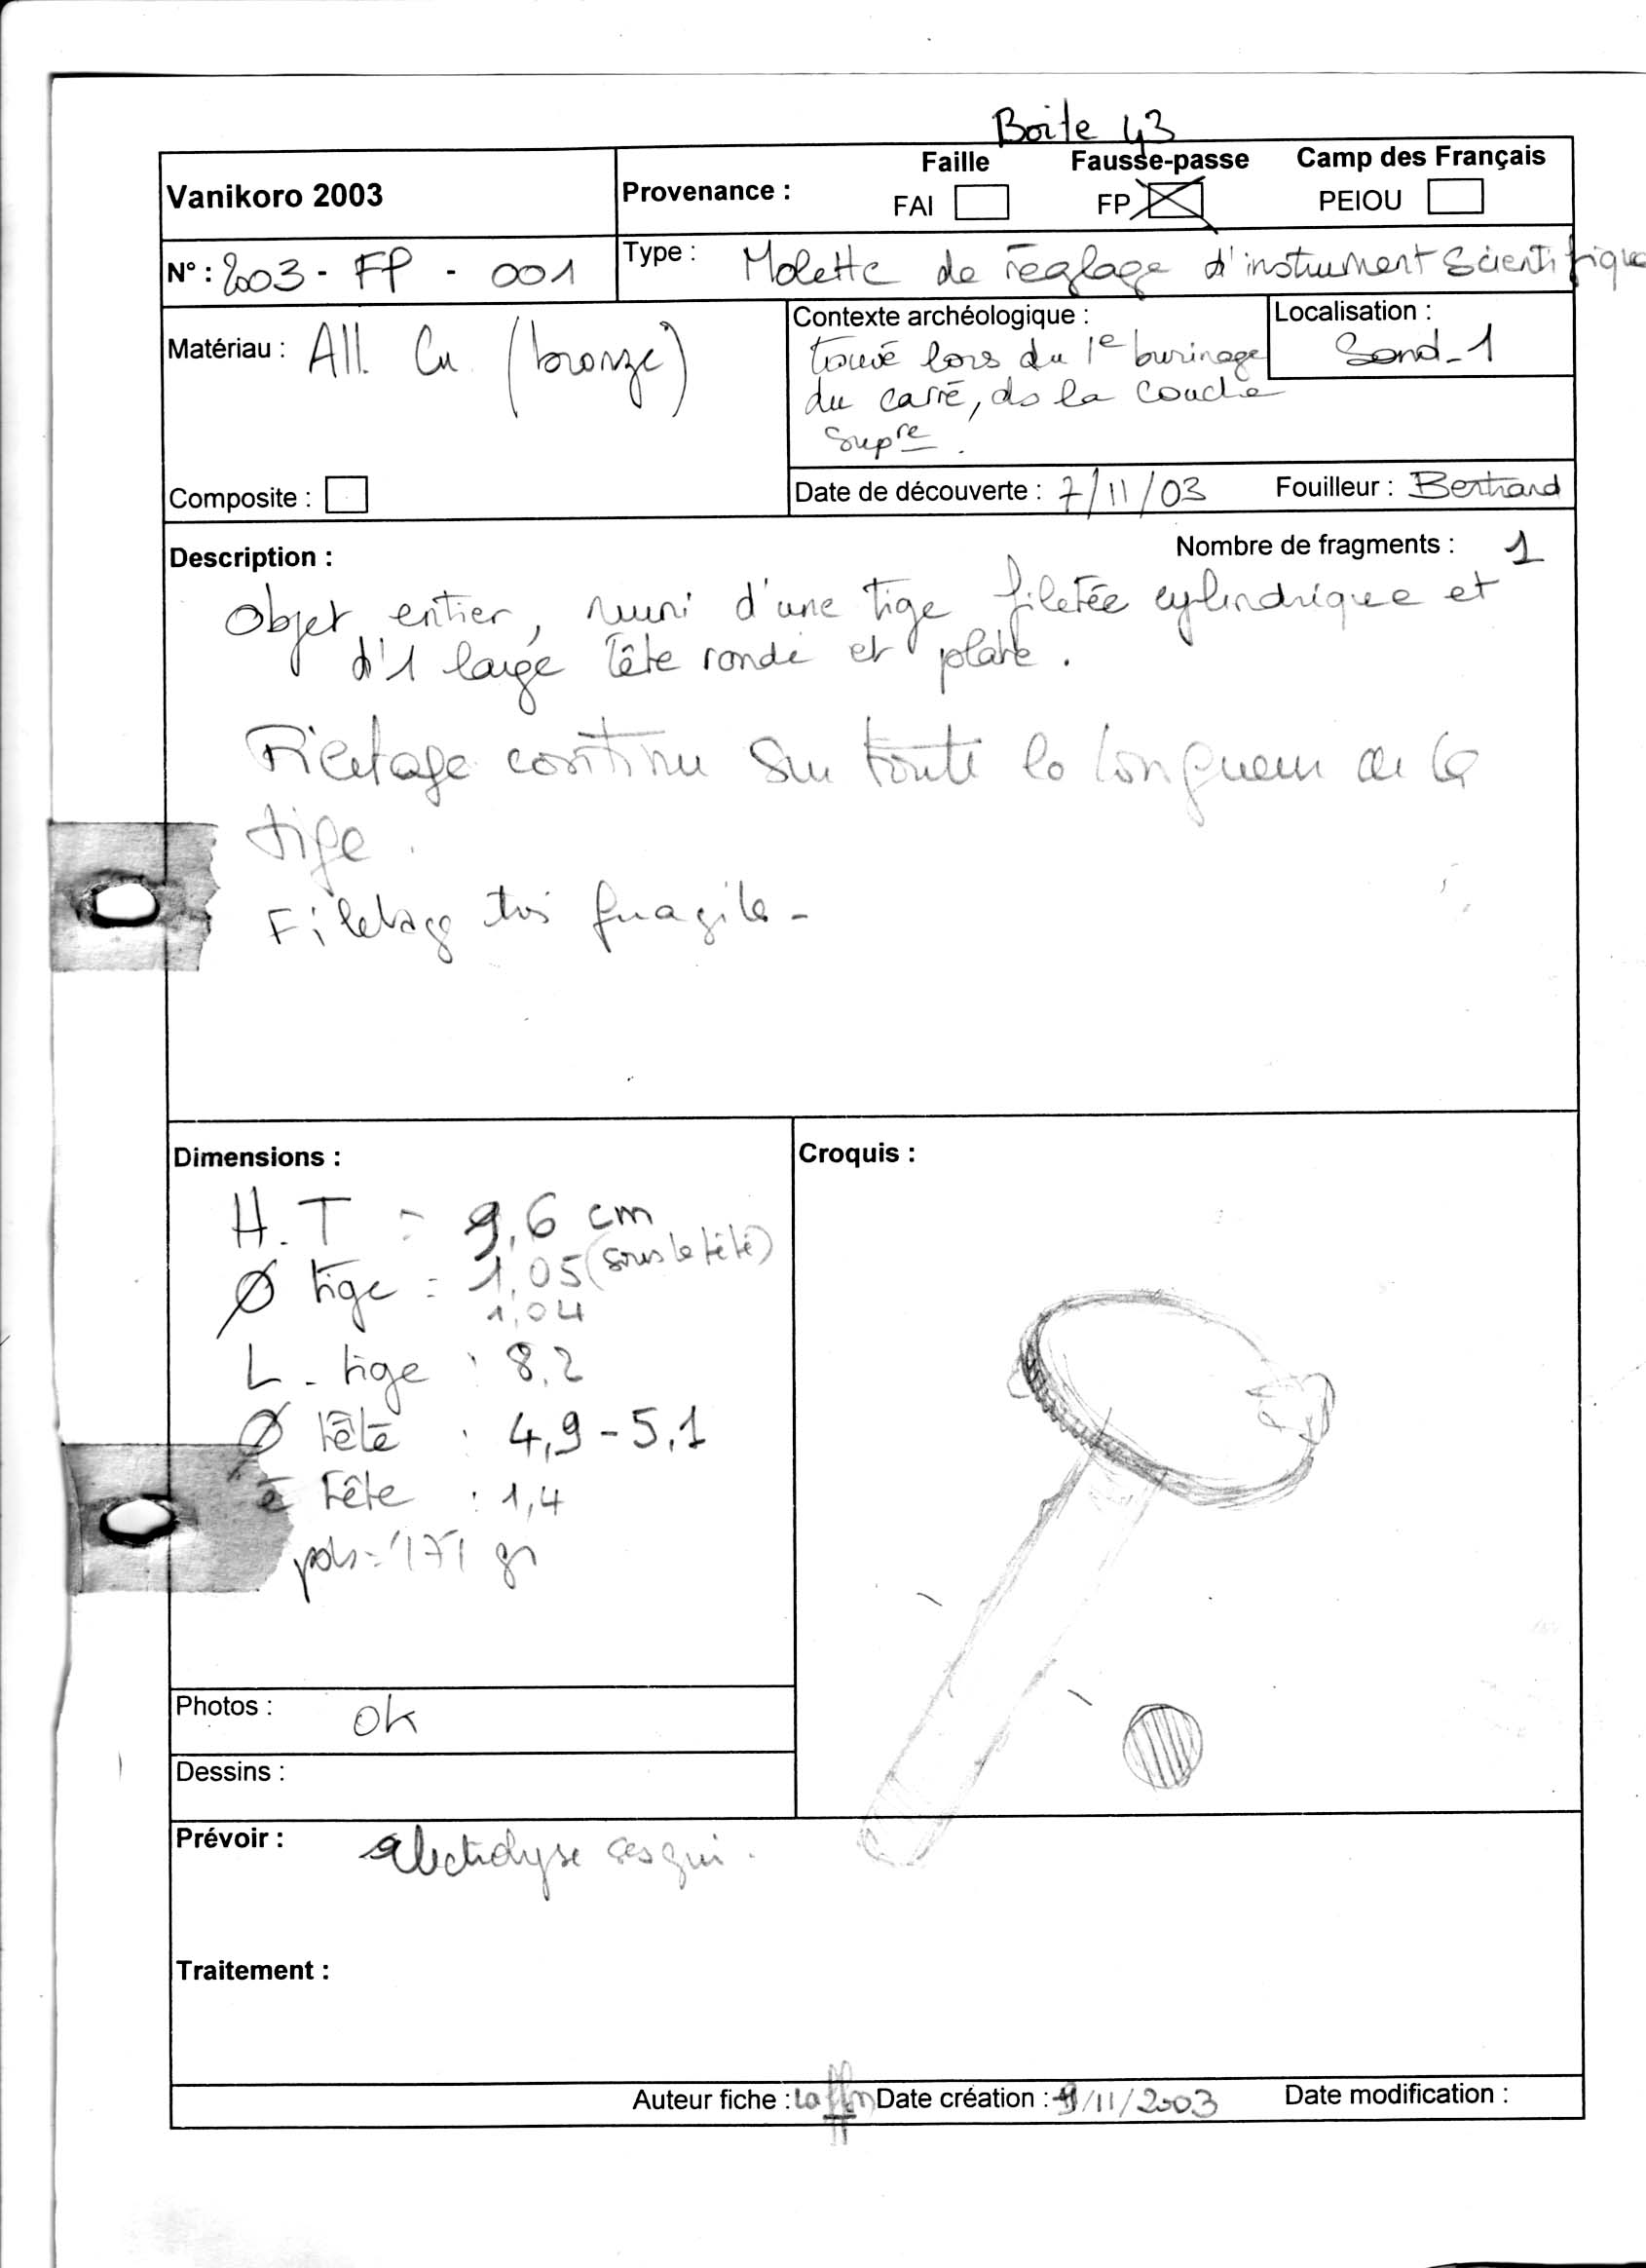 Boite 43
Vanikoro 2003
Provenance :
Faille Fausse-passe Camp des Français
FAI FP PEIOU
N° : 2003 - FP - 001
Type : Molette de réglage d'instrument scientifique
Matériau : All. Cu (bronze)
Composite :
Contexte archéologique :
trouvé lors du 1e burinage
du carré, ds la couche
supre.
Localisation :
Sond-1
Date de découverte : 7/11/03 Fouilleur : Bertrand
Description :
Nombre de fragments : 1
Objet entier, muni d'une tige filetée cylindrique et
d'1 large tête ronde et plate.
Filetage continu sur toute la longueur de la
tige.
Filetage très fragile -
Dimensions :
H.T = 9,6 cm
Ø tige = 1,05 (sous la tête)
1,04
L - tige : 8,2
Ø tête : 4,9 - 5,1
e tête : 1,4
pds = 171 gr
Croquis :
Photos : ok
Dessins :
Prévoir : electrolyse sesqui.
Traitement :
Auteur fiche : Date création : 9/11/2003 Date modification :